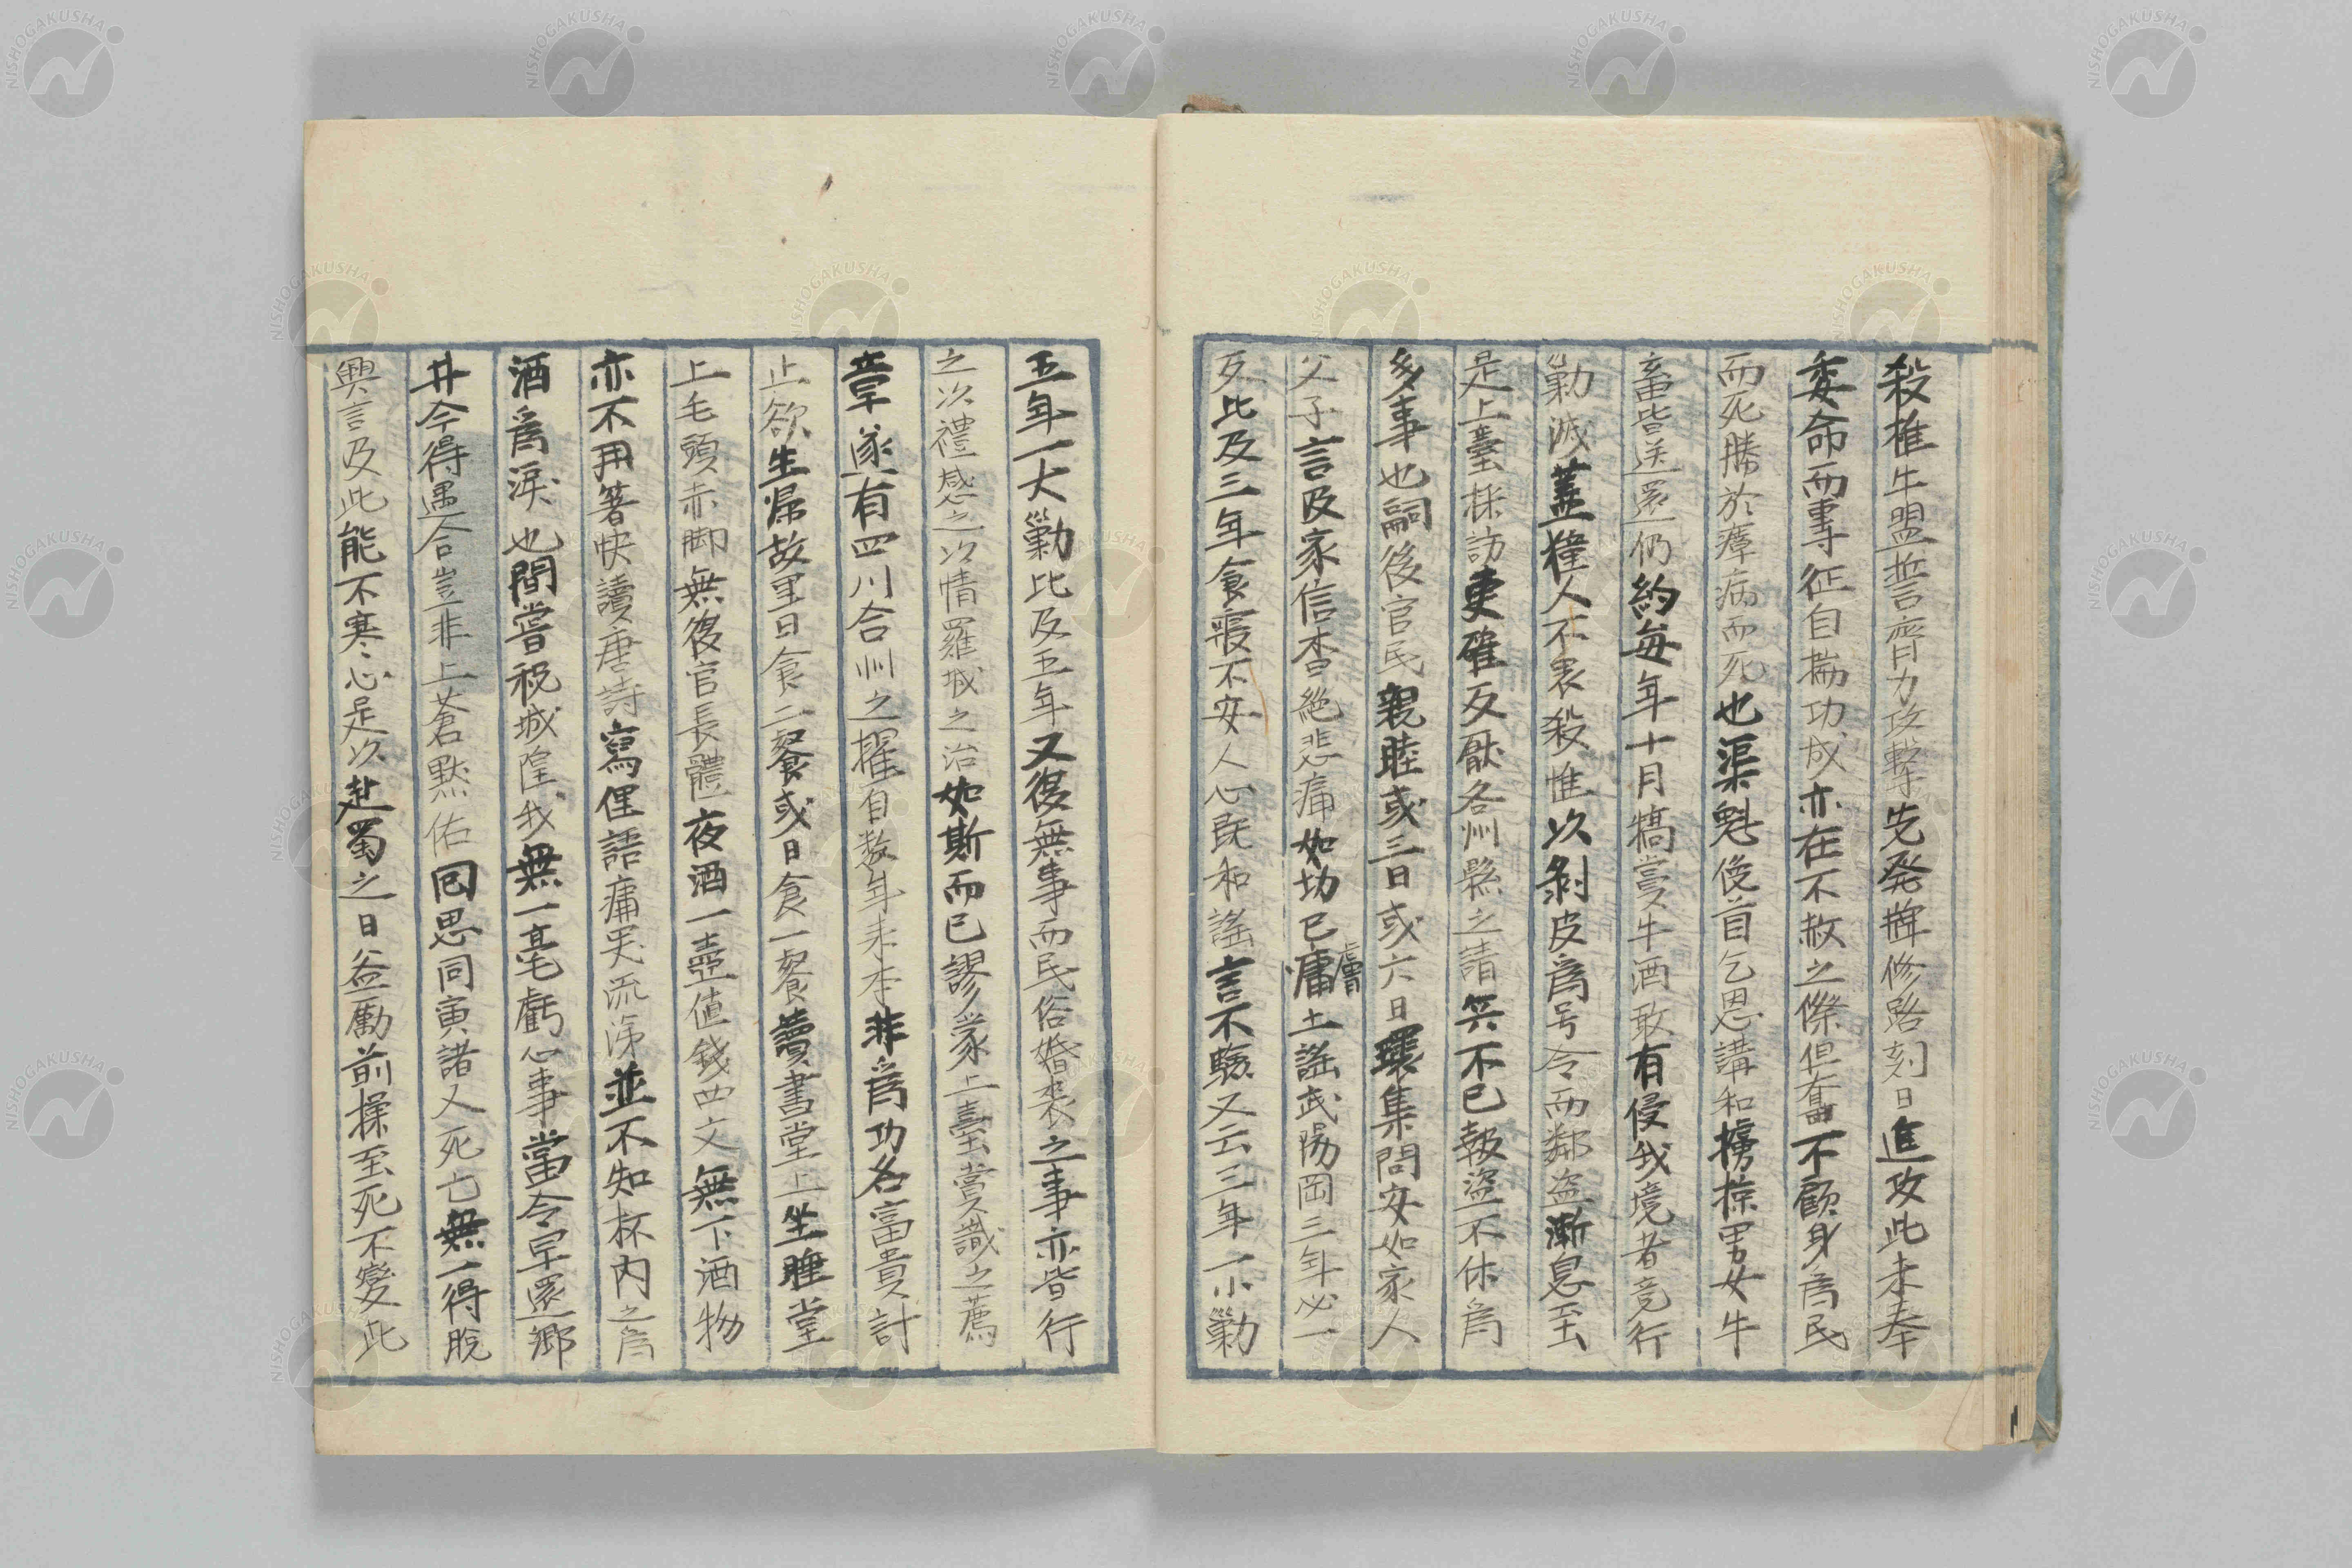 殺椎牛盟誓齊力攻撃先発牌修路刻日進攻此未奉
委命而専征自揣功成亦在不赦之條但奮不顧身為民
而死勝於瘴病而死也渠魁俛首乞恩講和擄掠男女牛
畜皆送還仍約毎年十月犒賞牛酒敢有侵我境者竟行
勦滅蓋獞人不畏殺惟以剝皮為号令而鄰盗漸息至
是上臺採訪更確反厭各州縣之請兵不已報盗不休為
多事也嗣後官民親睦或三日或六日環集問安如家人
父子言及家信杳絶悲痛如切已膚土謡武陽岡三年必一
反比及三年食寝不安人心既和謡言不驗又云三年一小勦
五年一大勦比及五年又復無事而民俗婚喪之事亦皆行
之以禮感之以情羅城之治如斯而已謬蒙上臺賞識之薦
章遂有四川合州之擢自数年来本非為功名富貴計
止欲生帰故里日食二餐或日食一餐讀書堂上坐睡堂
上毛頭赤脚無復官長體夜酒一壺値錢四文無下酒物
亦不用箸快讀唐詩寫俚語痛哭流涕並不知杯内之為
酒為涙也間嘗祝城隍我無一毫虧心事當令早還郷
井今得遇合豈非上蒼黙佑回思同寅諸人死亡無一得脱
興言及此能不寒心是以赴蜀之日益勵前操至死不變此
NISHOGAKUSHA